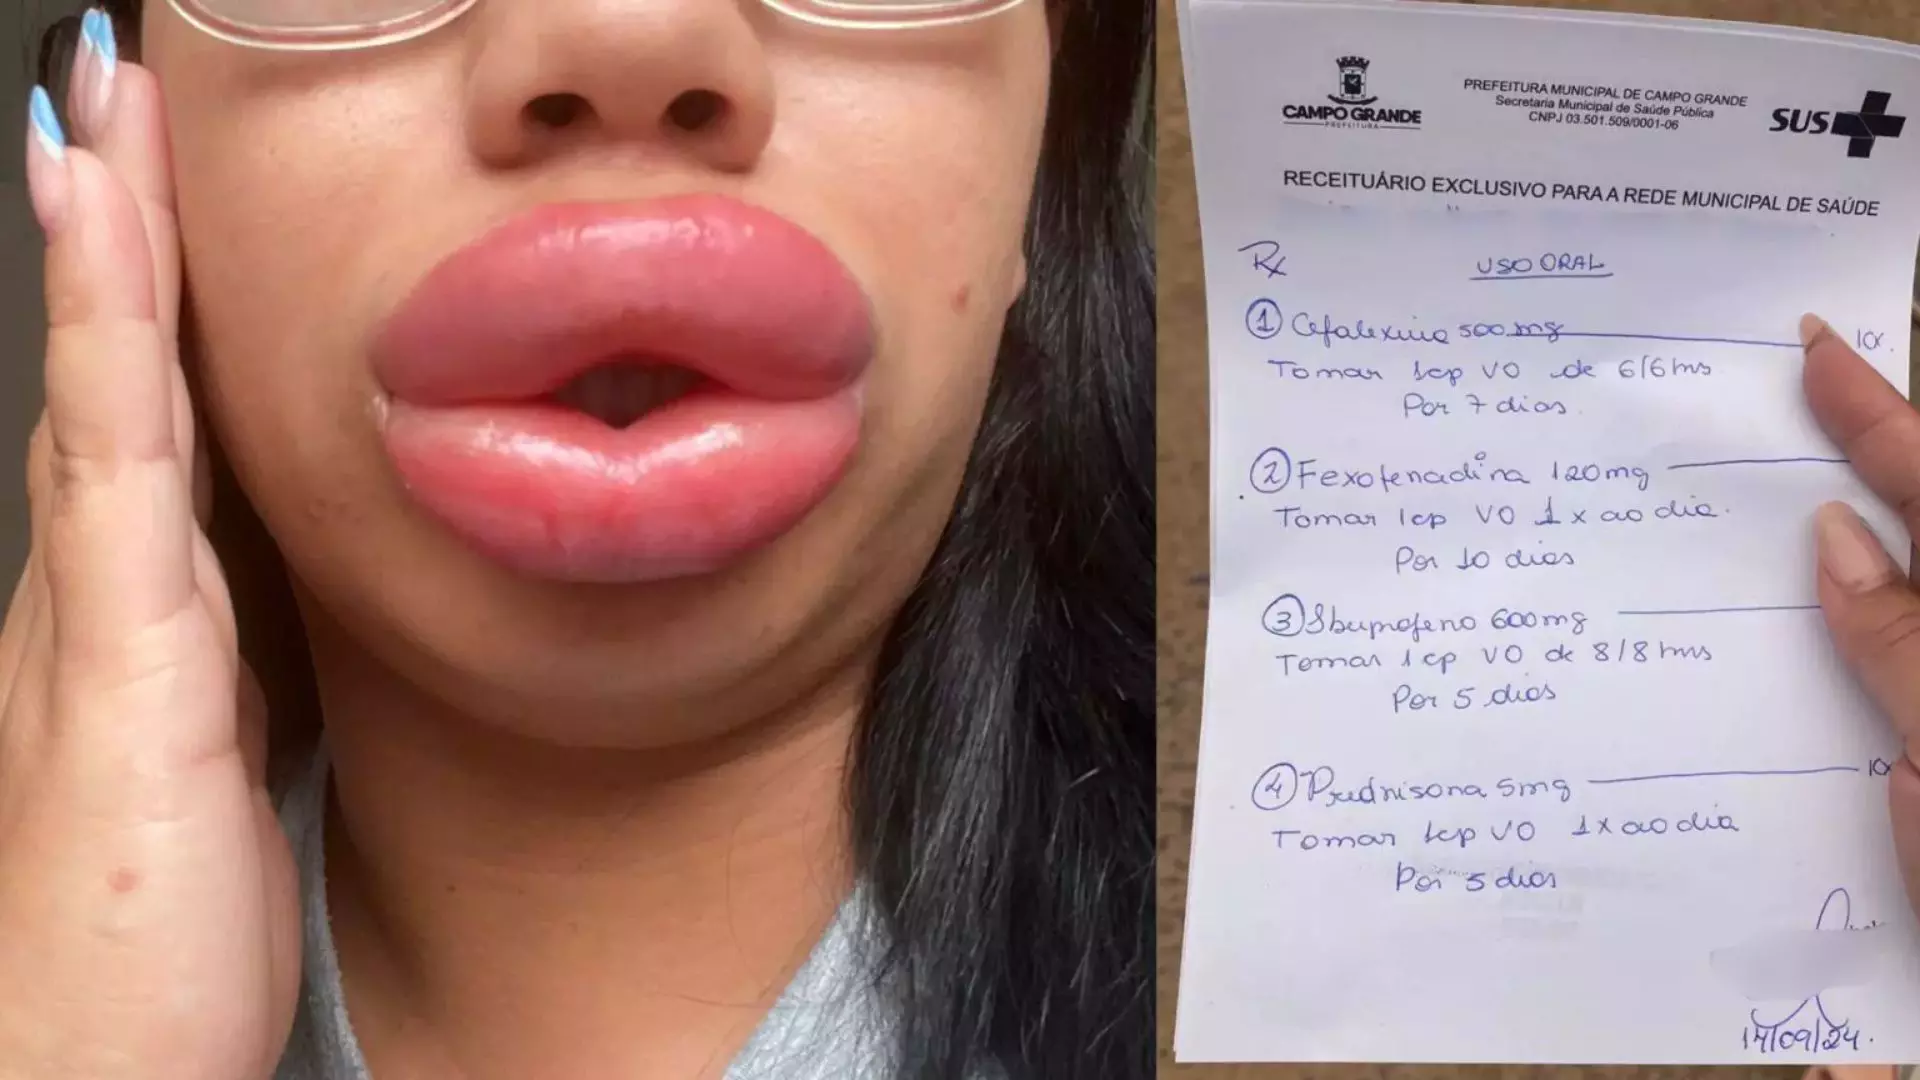 CAMPO GRANDE
PREFEITURA
PREFEITURA MUNICIPAL DE CAMPO GRANDE
Secretaria Municipal de Saúde Pública
CNPJ 03.501.509/0001-06
SUS
RECEITUÁRIO EXCLUSIVO PARA A REDE MUNICIPAL DE SAÚDE
Rx USO ORAL
1 Cefalexina 500mg 1cx.
Tomar 1cp VO de 6/6 hrs
Por 7 dias.
2 Fexofenadina 120mg
Tomar 1cp VO 1x ao dia.
Por 10 dias
3 Ibuprofeno 600mg
Tomar 1cp VO de 8/8 hrs
Por 5 dias
4 Prednisona 5mg 1cx
Tomar 1cp VO 1x ao dia
Por 5 dias
14/09/24.